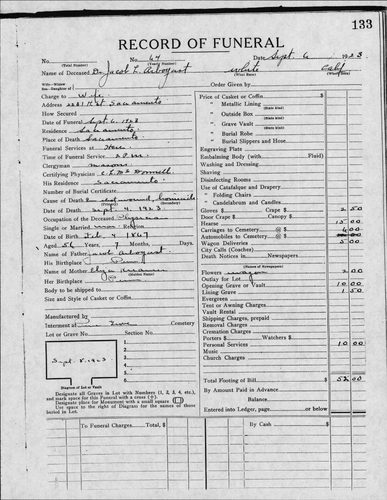 133
RECORD OF FUNERAL
No. No. 64 Date Sept. 6 1923
(Total Number) (Yearly Number)
Name of Deceased Dr Jacob L. Arbogast White Calif
(What Race) (Where Born)
Wife—Widow
Son—Daughter of Order Given by
Charge to Wife
Address Sacramento
Secured
Date of Funeral Sept 6 1923
Residence Sacramento
Place of Death Sacramento
Funeral Services at Here
Time of Funeral Service 2 P.M.
Clergyman masons
Certifying Physician
His Residence Sacramento
Number of Burial Certificate
Cause of Death gun shot wound, homicide
(Primary) (Secondary)
Date of Death Sept. 4, 1923
Occupation of the Deceased Physician
Single or Married married Religion
Date of Birth Feb. 4 1867
Aged 56 Years, 7 Months, Days
Name of Father Jacob Arbogast
His Birthplace Penn
Name of Mother
(Maiden Name)
Her Birthplace Penn
Body to be shipped to
Size and Style of Casket or Coffin
Manufactured by
Interment at Cemetery
Lot or Grave No. Section No.
1
2
3
4
5
6
7
Sept. 8 1923
Diagram of Lot or Vault
Designate all Graves in Lot with Numbers (1, 2, 3, 4, etc.), and mark space for this Funeral with a cross (+)
Designate place for Monument with a small square
Use space to the right of Diagram for the names of those buried in Lot.
Price of Casket or Coffin $
" Metallic Lining
(State Kind)
" Outside Box
(State Kind)
" Grave Vault
(State Kind)
" Burial Robe
" Burial Slippers and Hose
Engraving Plate
Embalming Body (with Fluid)
Washing and Dressing
Shaving
Disinfecting Rooms
Use of Catafalque and Drapery
" Folding Chairs
" Candelabrum and Candles
Gloves $ Crape $ 2 50
Door Crape $ Canopy $
Hearse 15 00
Carriages to Cemetery @ $ 6 00
Automobiles to Cemetery @ $
Wagon Deliveries 5 00
City Calls (Coaches) @ $
Death Notices in Newspapers
(Names of Newspapers)
Flowers wagon 2 00
Outlay for Lot
Opening Grave or Vault 10 00
Lining Grave 1 50
Evergreens
Tent or Awning Charges
Vault Rental
Shipping Charges, prepaid
Removal Charges
Cremation Charges
Porters $ Watchers $
Personal Services 10 00
Music
Church Charges
Total Footing of Bill $ 52 00
By Amount Paid in Advance
Balance
Entered into Ledger, page or below
To Charges forward Total, $ By Cash $